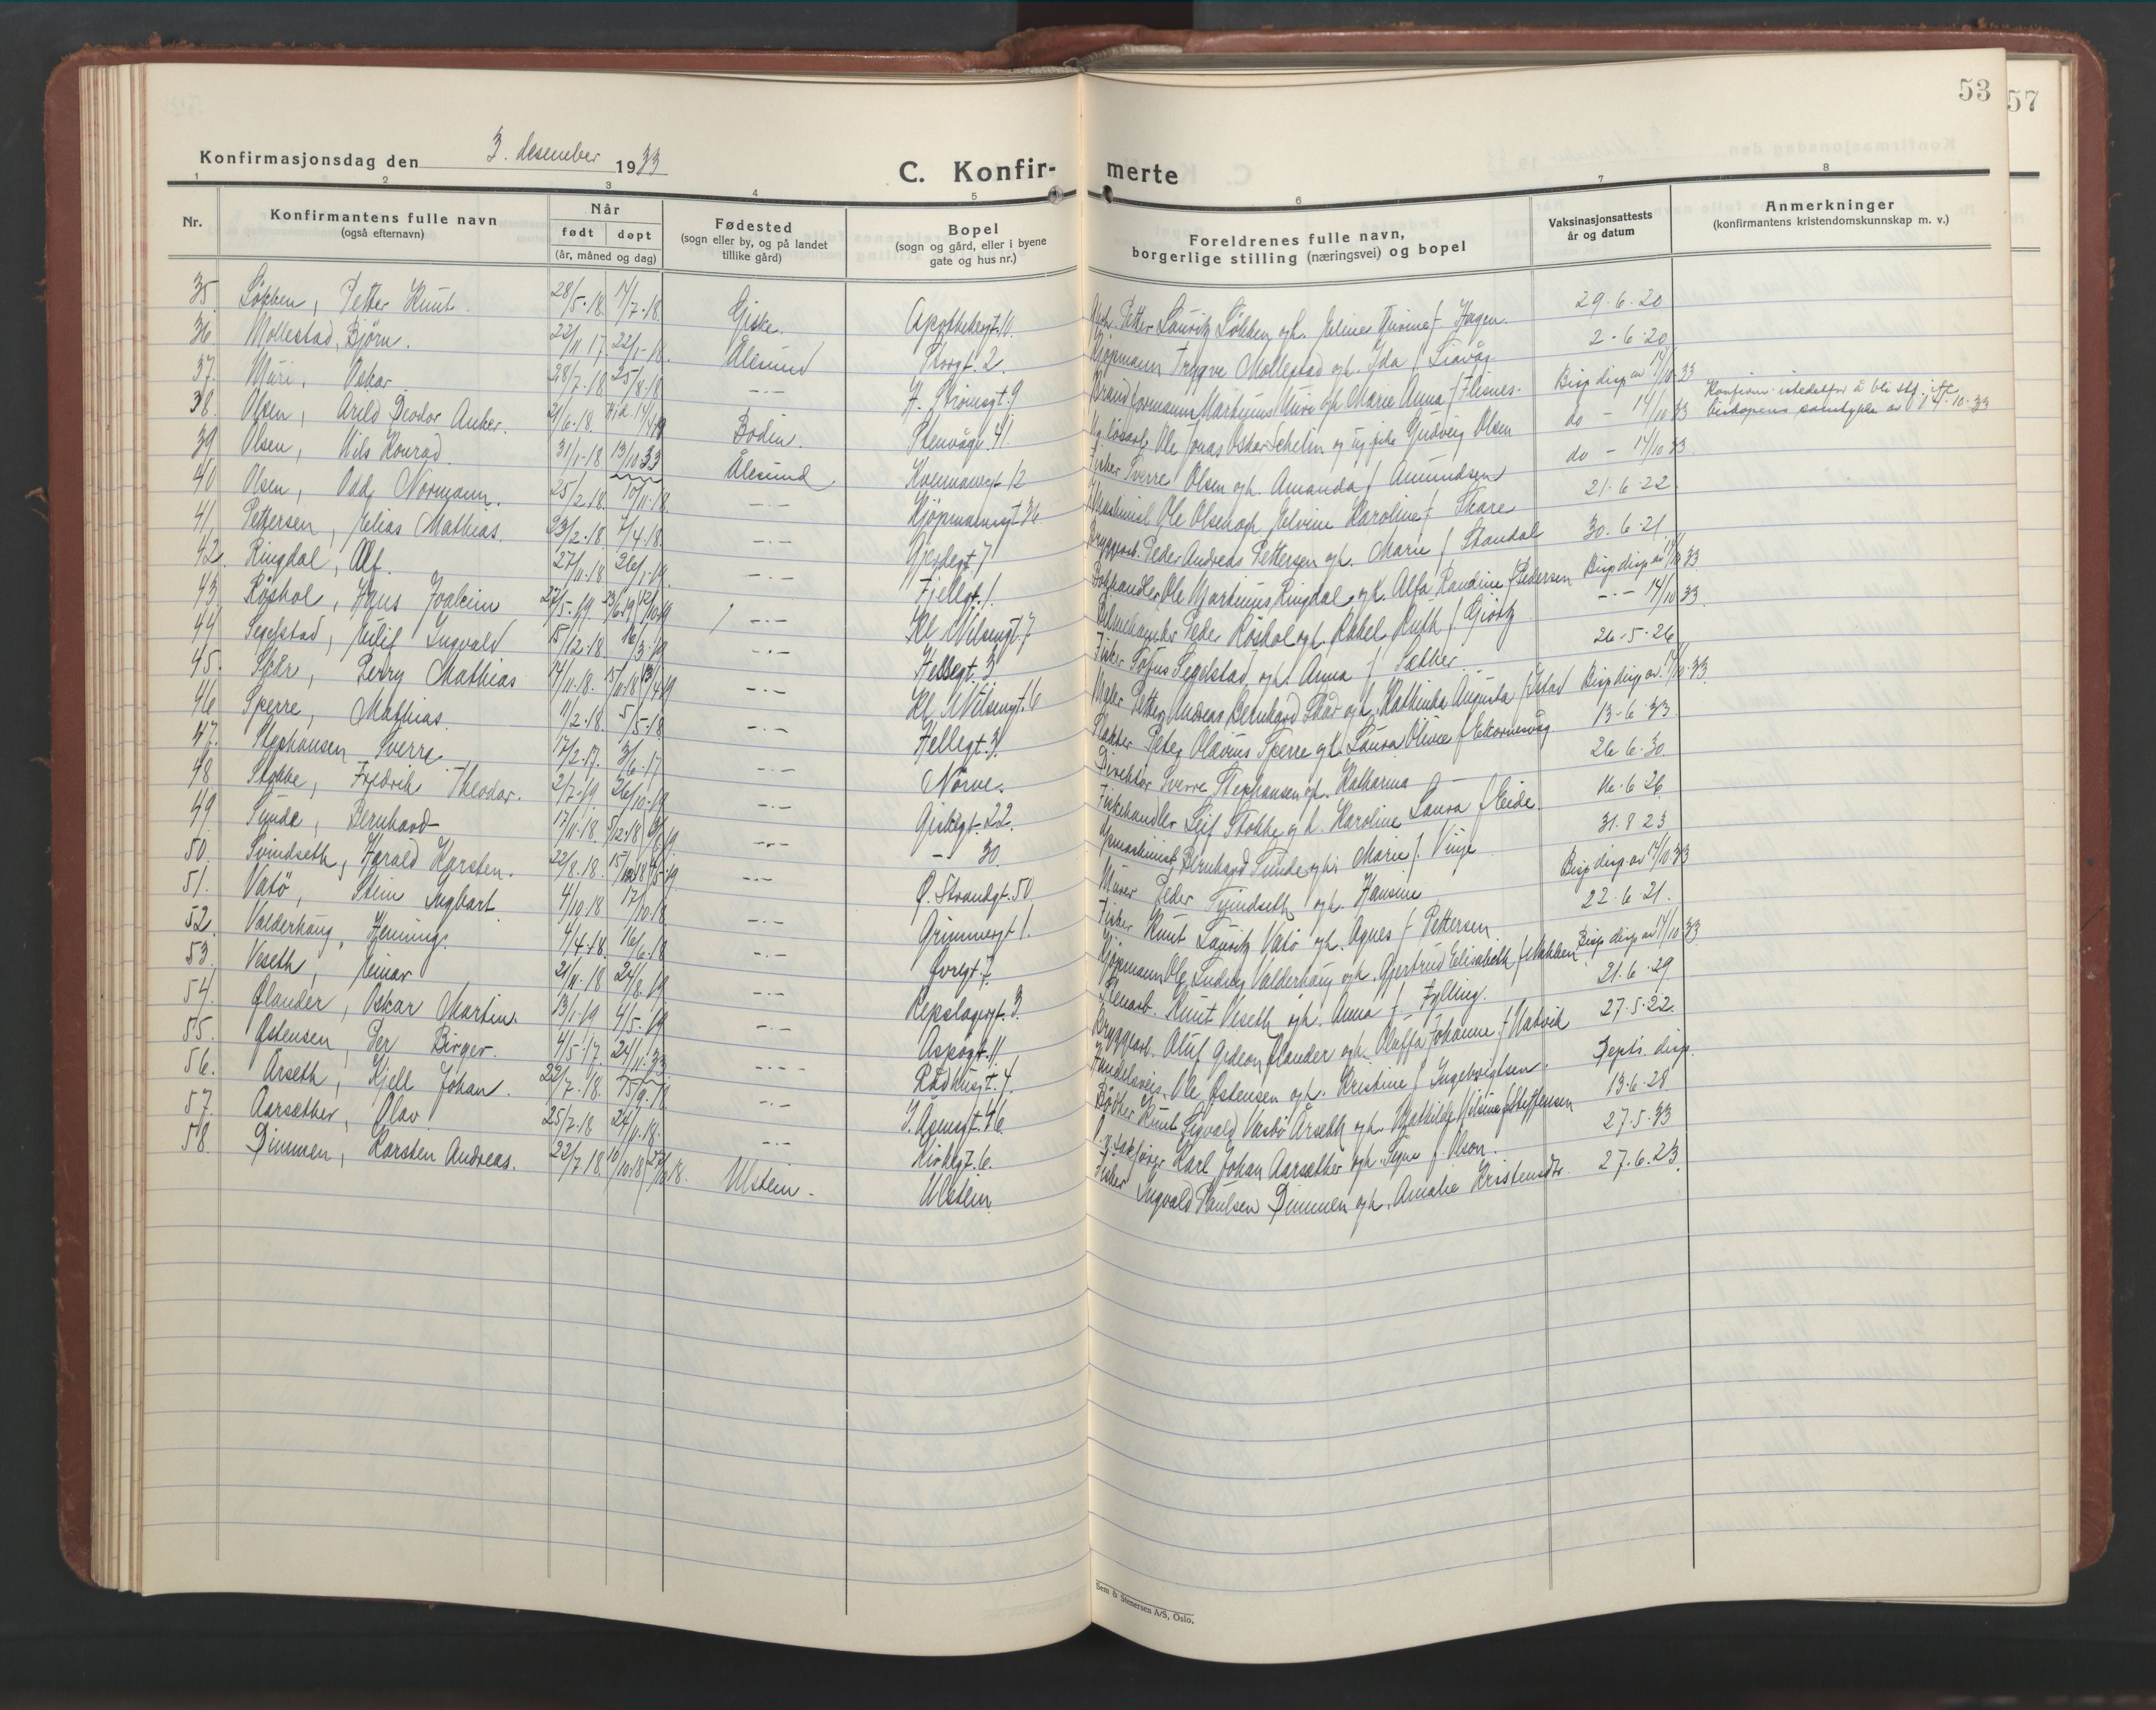 53
57
Konfirmasjonsdag den 3. desember 1933
C. Konfir-
merte
1 2 3 4 5 6 7 8
Nr.
Konfirmantens fulle navn
(også efternavn)
Når
født døpt
(år, måned og dag)
Fødested
(sogn eller by, og på landet
tillike gård)
Bopel
(sogn og gård, eller i byene
gate og hus nr.)
Foreldrenes fulle navn,
borgerlige stilling (næringsvei) og bopel
Vaksinasjonsattests
år og datum
Anmerkninger
(konfirmantens kristendomskunnskap m. v.)
35 Løkken, Petter Knut. 28/5-18. Giske. Petter Lauritz Løkken Hagen. 29-6-20
36 Mollestad, Björn. 22/11-17. 22/1-18. Ålesund Storgt. 2. Kjøpmann Trygve Mollestad og h. Ida f. Liavåg. 2-6-20
37. Muri, Oskar 28/7-18 25/8-18 -"- 9 Brandformann Martinus Muri og h. Marie Anna f. Flisnes. Bisp disp av 14/10-33
38. Olsen, Arild Teodor Anker. 21/6-18. Bodin. Stenvågv. 41. Ole Jonas Oskar Schelin og ug. pike Gudveig Olsen do - 14/10 33
39 Olsen, Nils Konrad. 31/1-18 13/10 33 Ålesund 12 Fisker Sverre Olsen og h. Amanda f. Amundsen do - 14/10 33
40 Olsen, Odd Normann. 25/2-18. 10/11-18. -"- Kjøpmannsgt 36 Maskinist Ole Olsen og h. Karoline f. Skare 21-6-22
41 Pettersen, Elias Mathias. 23/2-18. 7/4-18. -"- 7 Bryggearb. Peder Andreas Pettersen og h. Marie f. Standal 30-6-21
42. Ringdal, Alf. 27/11-18 26/1-19. -"- Fjellgt. 1. Ole Martinus Ringdal og h. Alfa Randine f. Pedersen Bisp disp av 14/10 33
43 Røshol, Joakim -"- Kl. Nilsengt. 7 Peder Røshol og h. Rakel Ruth f. Giörtz -"- 14/10 33
44 Segelstad, Eilif Ingvald 15/12-18. 16/3-19 -"- Hellegt. 3 Fisker Sofus Segelstad og h. Anna f. Sæther 26-5-26
45. Skår, Perry Mathias 14/11-18. -"- Kl. Nilsengt. 6 Maler Petter Andreas Bernhard Skår og h. Kathinka Augusta f. Ystad Bisp disp av 14/10-33
46 Sperre, Mathias 11/2-18. 5/5-18 -"- Hellegt. 31 Peter Olavius Sperre og h. Laura Olivie f. Ekornesvåg 13-6-33
47. Stephansen Sverre 17/2-17. 3/6-17 -"- Nörve. Direktør Sverre Stephansen og h. Katharina 26-6-30
48 Stokke, Fredrik Theodor. 2/7-19. 26/10-19 -"- Giskegt. 22. Fiskehandler Leif Stokke og h. Karoline Laura f. Eide. 16-6-26
49 Sunde, Bernhard 17/11-18. -"- - 30. Bernhard Sunde og h. Marie f. Vinje 31.8 23
50. Svindseth, Harald Karsten. 22/8-18. -"- Ø. Strandgt. 50. Murer Peder Svindseth og h. Hansine Bisp disp av 14/10-33
51. Vatö, Stein Ingbart 4/10-18 17/10-18 -"- Grimmergt 1. Fisker Knut Lauritz Vatö og h. Agnes f. Pettersen 22-6-21.
52. Valderhaug, Henning. 4/4-18. 16/6-18 -"- Kjøpmann Ole Ludvig Valderhaug og h. Gjertrud Elisabeth f. Nakken Bisp disp av 14/10-33
53. Veseth, Einar 21/11-18 24/8-19 -"- Repslagergt. 3. Knut Veseth og h. Anna f. Fylling. 21-6-29
54. Ølander, Oskar Martin. 13/1-19 4/5-19 -"- Aspøgt. 11. Bryggearb. Oluf Gedeon Ølander og h. Oluffa Johanne f. Natvik 27-5-22.
55. Østensen, Per Birger. 4/5-17. 24/11-33 -"- Rådhusgt. 4. Handelsreis. Ole Østensen og h. Kristine f. Ingebrigtsen. Septs. disp.
56. Årseth, Kjell Johan. 22/7-18. 15/9-18 -"- 46 Bøkker Knut Sigvald Vartö Årseth og h. Mathilde Nilsine f. Steffensen 13-6-28
57. Aarsæther, Olav 25/7-18 24/11-18. -"- Kirkegt. 6. O.r.sakfører Karl Johan Aarsæther og h. Signe f. Olson. 27-5-33
58. Dimmen, Karsten Andreas. 22/7-18 Ulstein. Ulstein Fisker Ingvald Paulsen Dimmen og h. Amalie Kristensdtr. 27.6.23
Konfirm. istedetfor å bli
biskopens samtykke av 14-10-33
Sem & Stenersen A/S, Oslo.